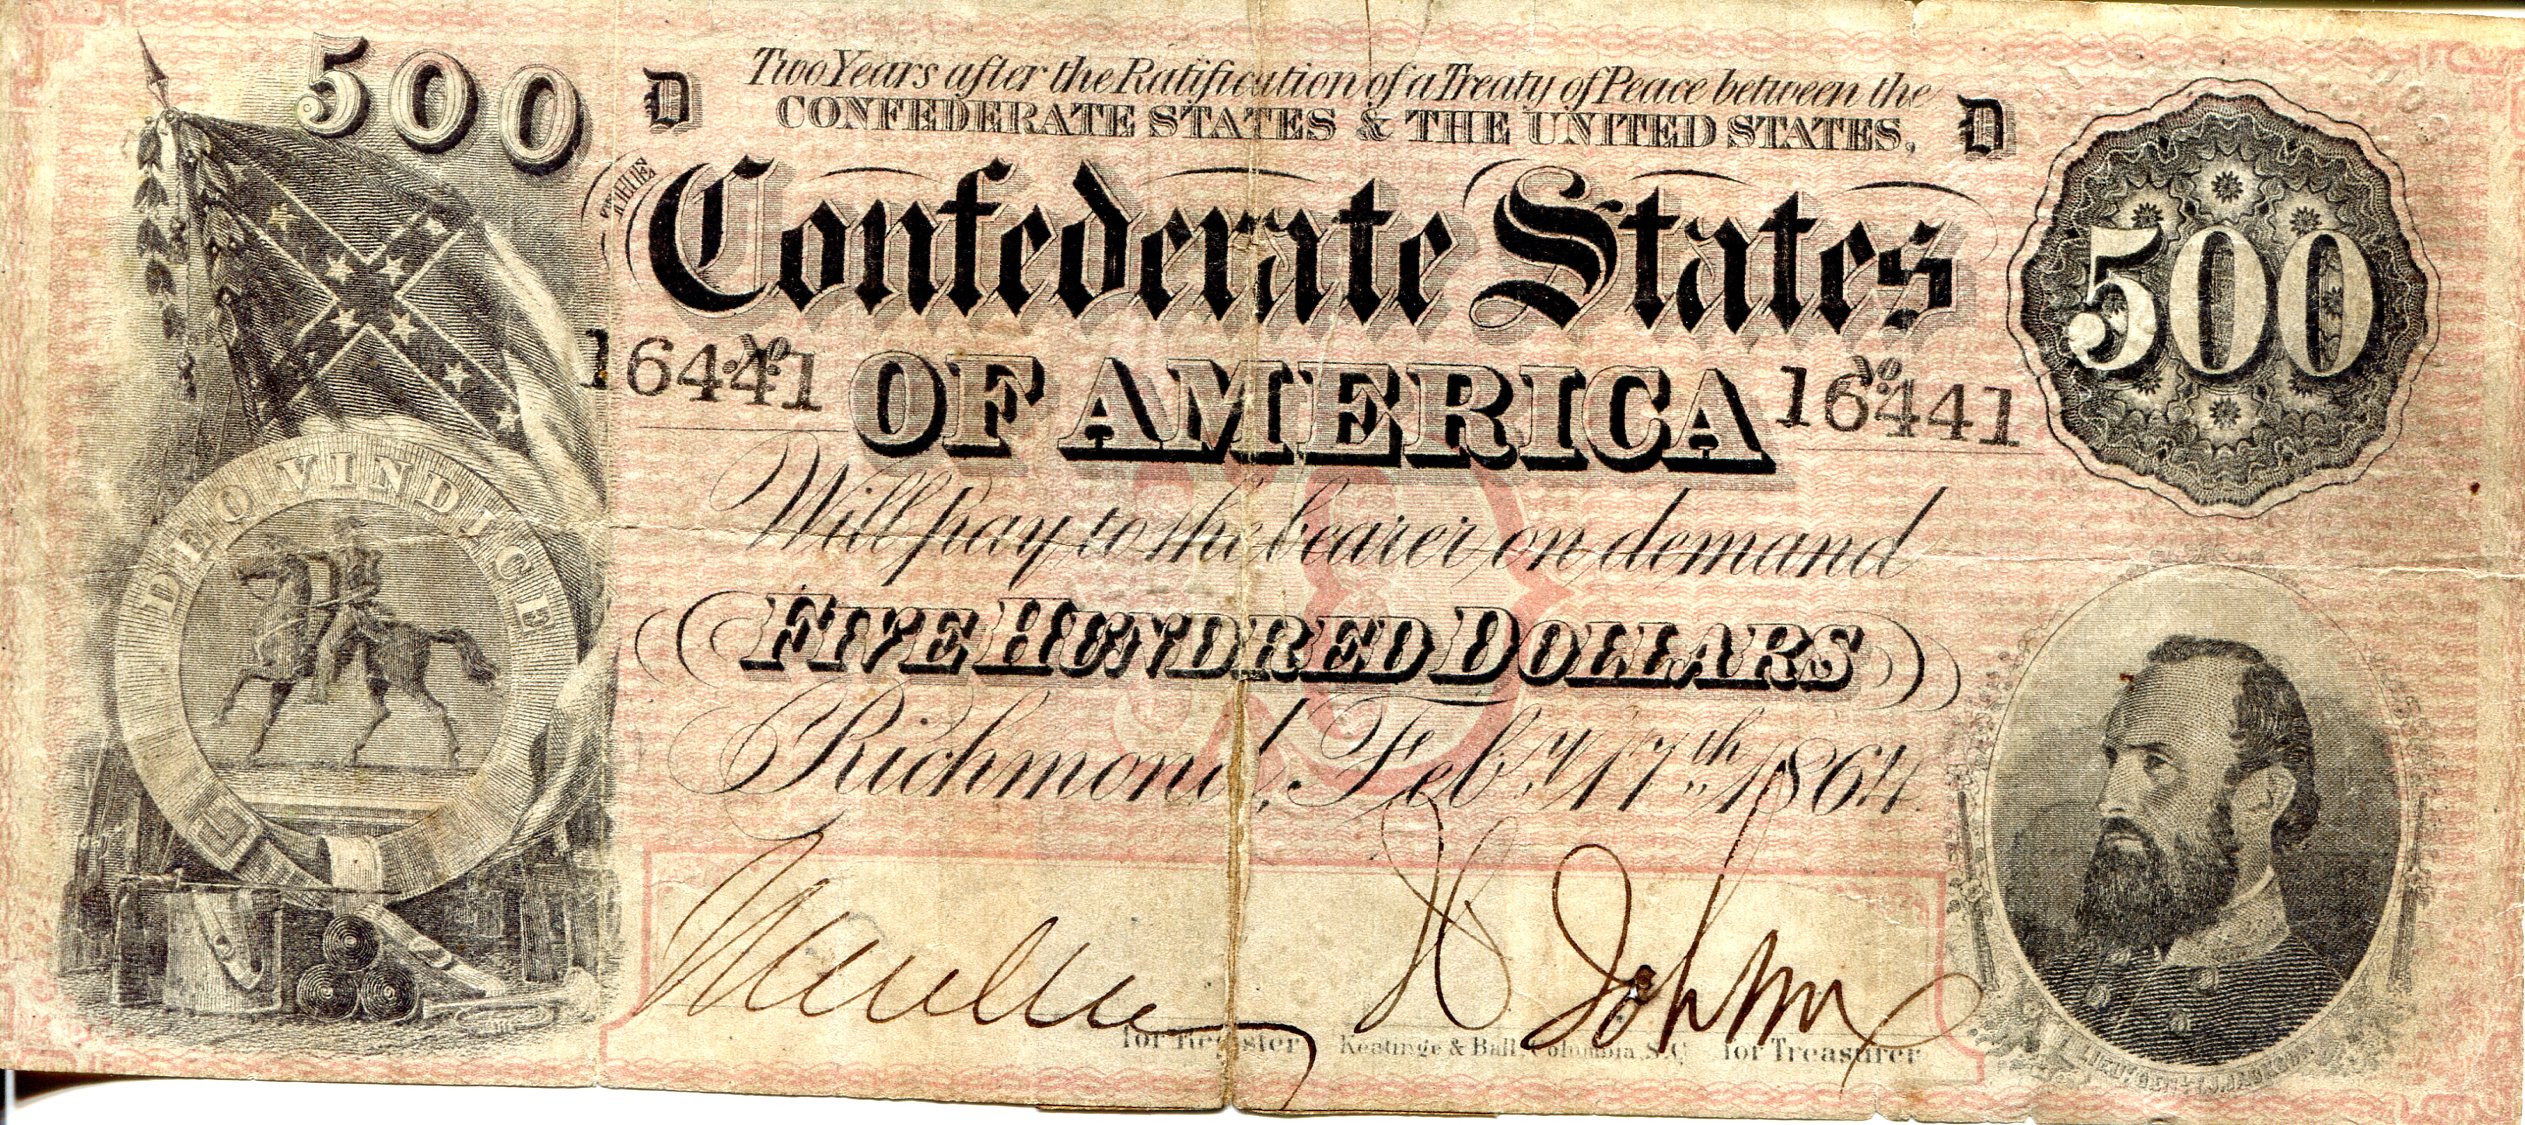 500
D
Two Years after the Ratification of a Treaty of Peace between the
CONFEDERATE STATES & THE UNITED STATES,
D
THE
Confederate States
500
16441
No.
OF AMERICA
No.
16441
Will pay to the bearer on demand
DEO VINDICE
FIVE HUNDRED DOLLARS
Richmond, Feby. 17th 1864.
for Register
Keatinge & Ball, Columbia, S.C.
for Treasurer
LIEUT. GEN. T.J. JACKSON